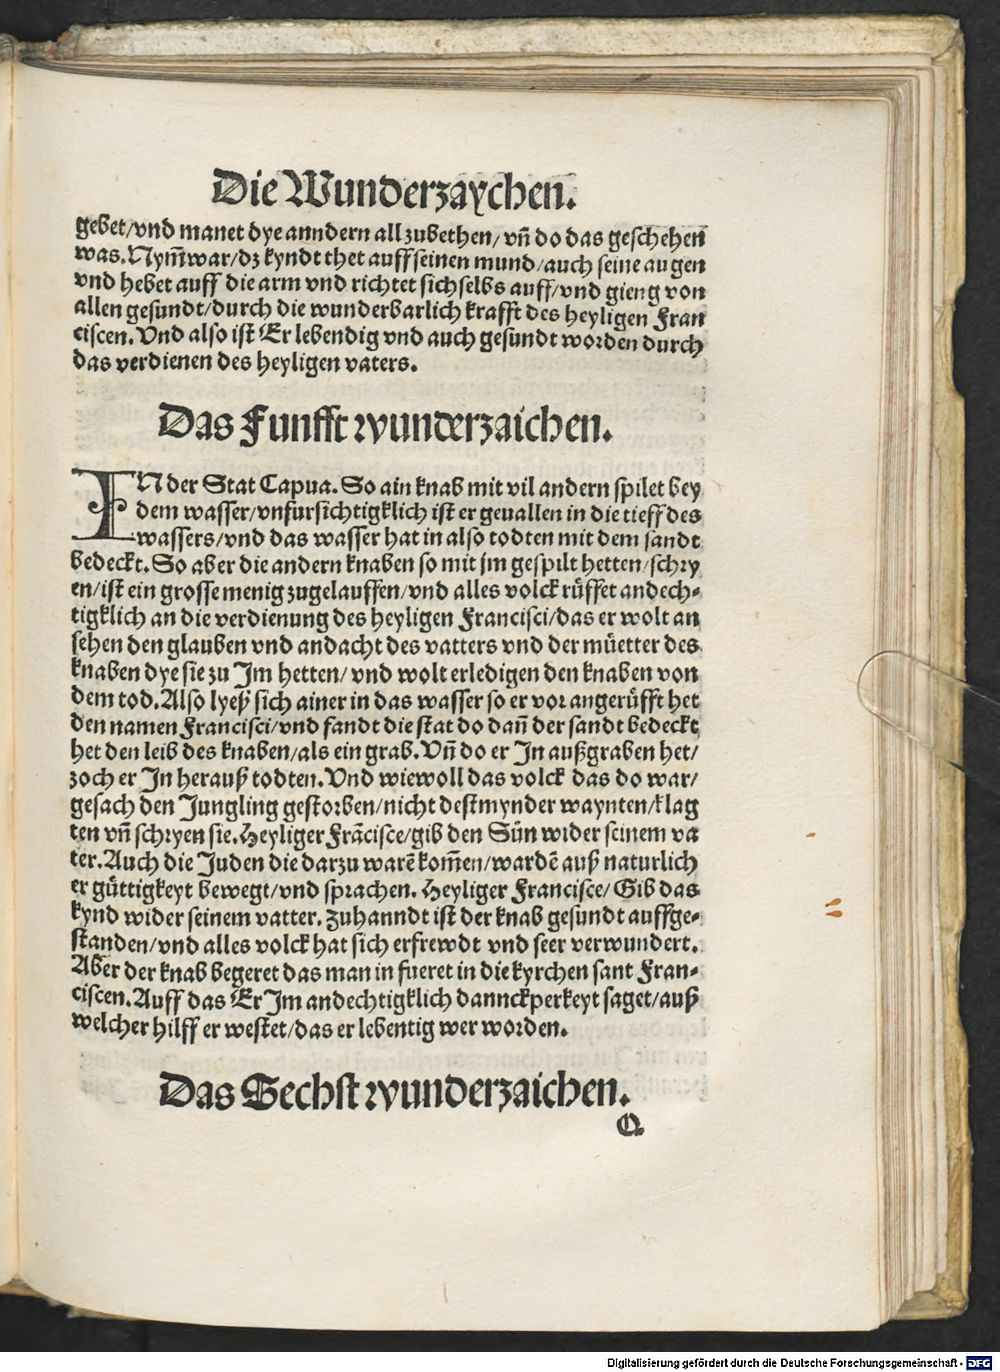 Die Wunderzaychen.
gebet/vnd manet dye anndern all zubethen/ vñ do das geschehen
was. Nym̃ war/dz kyndt thet auff seinen mund/auch seine augen
vnd hebet auff die arm vnd richtet sich selbs auff/vnd gieng von
allen gesundt/durch die wunderbarlich krafft des heyligen Fran
ciscen. Vnd also ist Er lebendig vnd auch gesundt worden durch
das verdienen des heyligen vaters.
Das Funfft wunderzaichen.
IN der Stat Capua. So ain knab mit vil andern spilet bey
dem wasser/vnfursichtigklich ist er geuallen in die tieff des
wassers/vnd das wasser hat in also todten mit dem sandt
bedeckt. So aber die andern knaben so mit jm gespilt hetten/schry
en/ist ein grosse menig zugelauffen/vnd alles volck rüffet andech-
tigklich an die verdienung des heyligen Francisci/das er wolt an
sehen den glauben vnd andacht des vatters vnd der müetter des
knaben dye sie zu Im hetten/ vnd wolt erledigen den knaben von
dem tod. Also lyeß sich ainer in das wasser so er vor angerüfft het
den namen Francisci/vnd fandt die stat do dañ der sandt bedeckt
het den leib des knaben/als ein grab. Vñ do er In außgraben het/
zoch er In herauß todten. Vnd wiewoll das volck das do war/
gesach den Jungling gestorben/nicht destmynder waynten/klag
ten vñ schryen sie. Heyliger Frãcisce/gib den Sün wider seinem va
ter. Auch die Juden die darzu warẽ kom̃en/wardẽ auß naturlich
er güttigkeyt bewegt/vnd sprachen. Heyliger Francisce/ Gib das
kynd wider seinem vatter. Zuhanndt ist der knab gesundt auffge-
standen/vnd alles volck hat sich erfrewdt vnd seer verwundert.
Aber der knab begeret das man in fueret in die kyrchen sant Fran-
ciscen. Auff das Er Im andechtigklich dannckperkeyt saget/auß
welcher hilff er westet/das er lebentig wer worden.
Das Sechst wunderzaichen.
Q
Digitalisierung gefördert durch die Deutsche Forschungsgemeinschaft - DFG